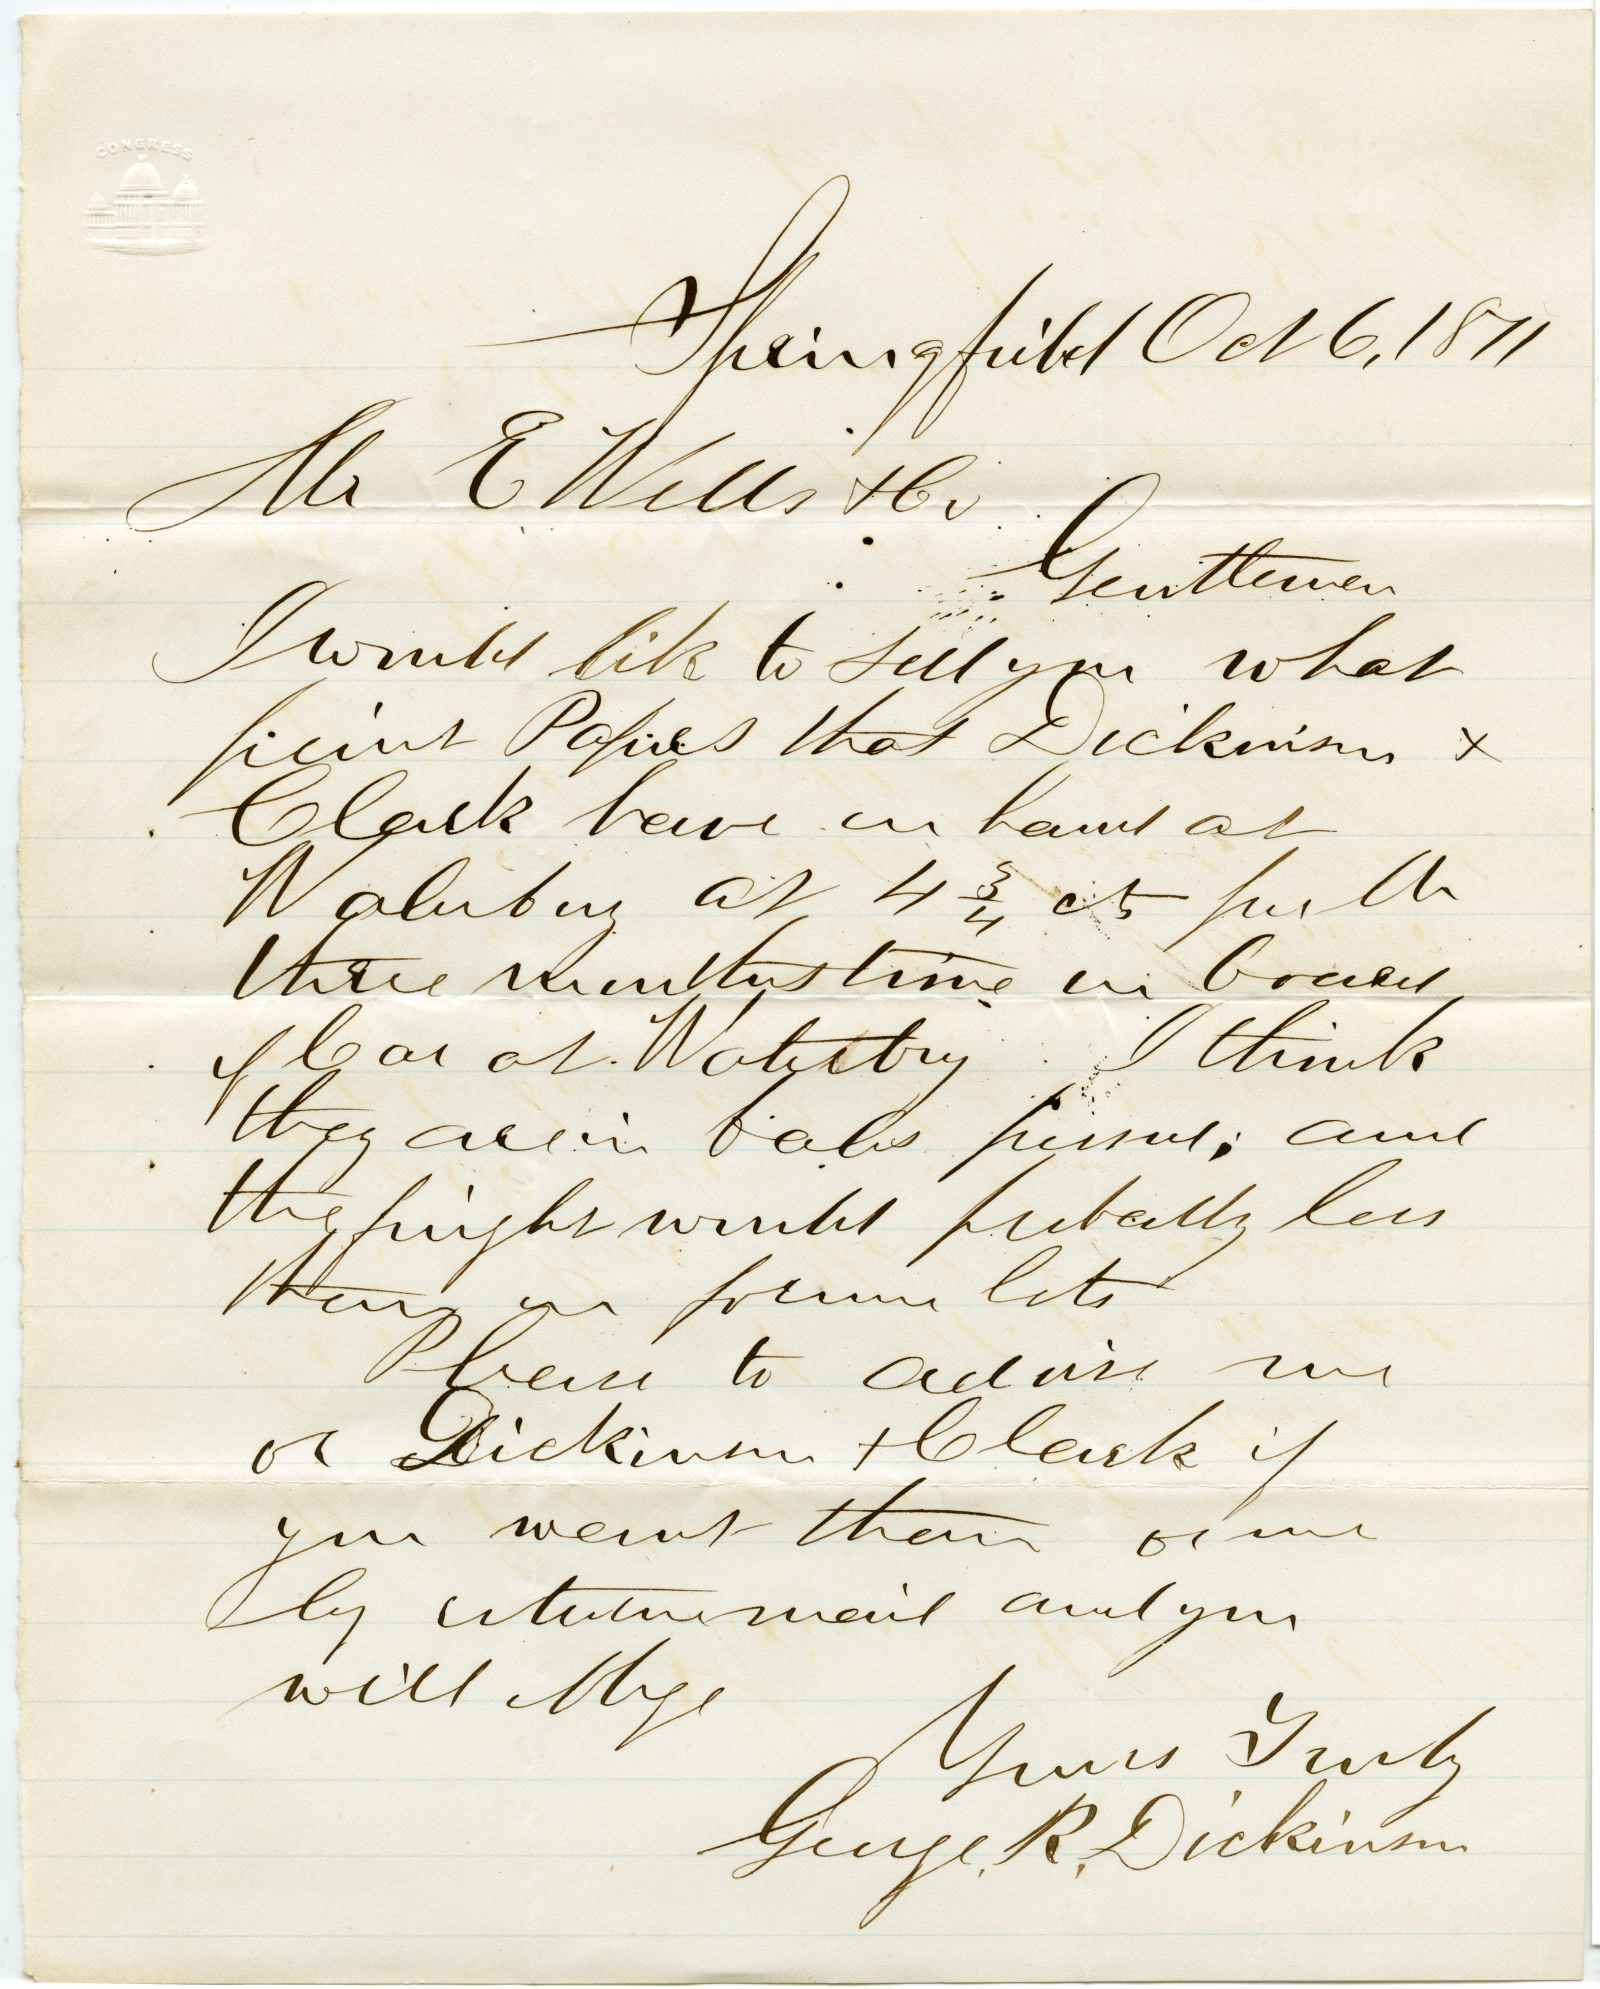 CONGRESS
Springfield Oct 6, 1871
Mr E Wells & Co
Gentlemen
I would like to sell you what
print Papers that Dickinson &
Clark have on hand at
Waterbury at 4 3/4 cts per lb
three months time on board
of Car at Waterbury I think
they are in bales pressed; and
the freight would probably less
than on former lots
Please to advise me
or Dickinson & Clark if
you want them or me
by return mail and you
will oblige
Yours Truly
George. R. Dickinson